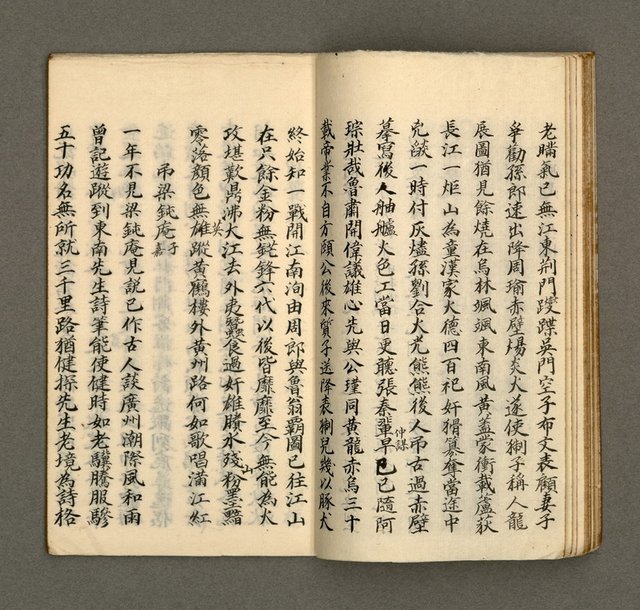 老瞞氣已無江東荆門躞蹀吳門空子布文表顧妻子
爭勸孫郎速出降周瑜赤壁煬炎火遂使猘子稱人龍
展圖猶見餘燒在烏林颯颯東南風黃蓋蒙衝載蘆荻
長江一炬山為童漢家火德四百祀奸猾篡奪當途中
兇燄一時付灰燼孫劉合火光熊熊後人吊古過赤壁
摹寫後人舳艫火色工當日更聽張秦輩早已已隨阿
仲謀
琮壯哉魯肅開偉議雄心先與公瑾同黃龍赤烏三十
載帝業不自方頤公後來質子送降表猘兒幾以豚犬
終始知一戰開江南洵由周郎與魯翁霸圖已往江山
在只餘金粉無鋩鋒六代以後皆靡靡至今無能為火
攻堪歎鼎沸大江去外夷蠶食過奸雄賸水殘粉墨黯
山
零落顏色無雄蹤黃鶴樓外黃州路何如歌唱滿江紅
英
吊梁鈍庵
子嘉
一年不見梁鈍庵見說已作古人談廣州潮際風和雨
曾記遊蹤到東南先生詩筆能使健時如老驥騰服驂
五十功名無所就三千里路猶健探先生老境為詩格